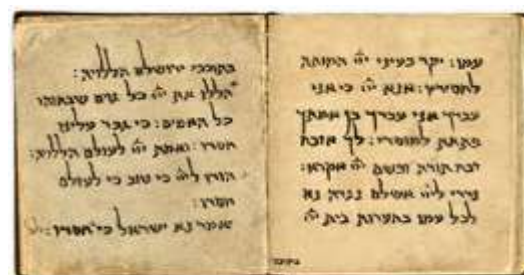 עמו: יקר בעיני ייי המותה
לחסידיו: אנא ייי כי אני
עבדך אני עבדך בן אמתך
פתחת למוסרי: לך אזבח
זבח תודה ובשם ייי אקרא:
נדרי לייי אשלם נגדה נא
לכל עמו בחצרות בית ייי
בתוככי ירושלם הללויה:
הללו את ייי כל גוים שבחוהו
כל האמים: כי גבר עלינו
חסדו: ואמת ייי לעולם הללויה:
הודו לייי כי טוב כי לעולם
חסדו:
יאמר נא ישראל כי חסדו: